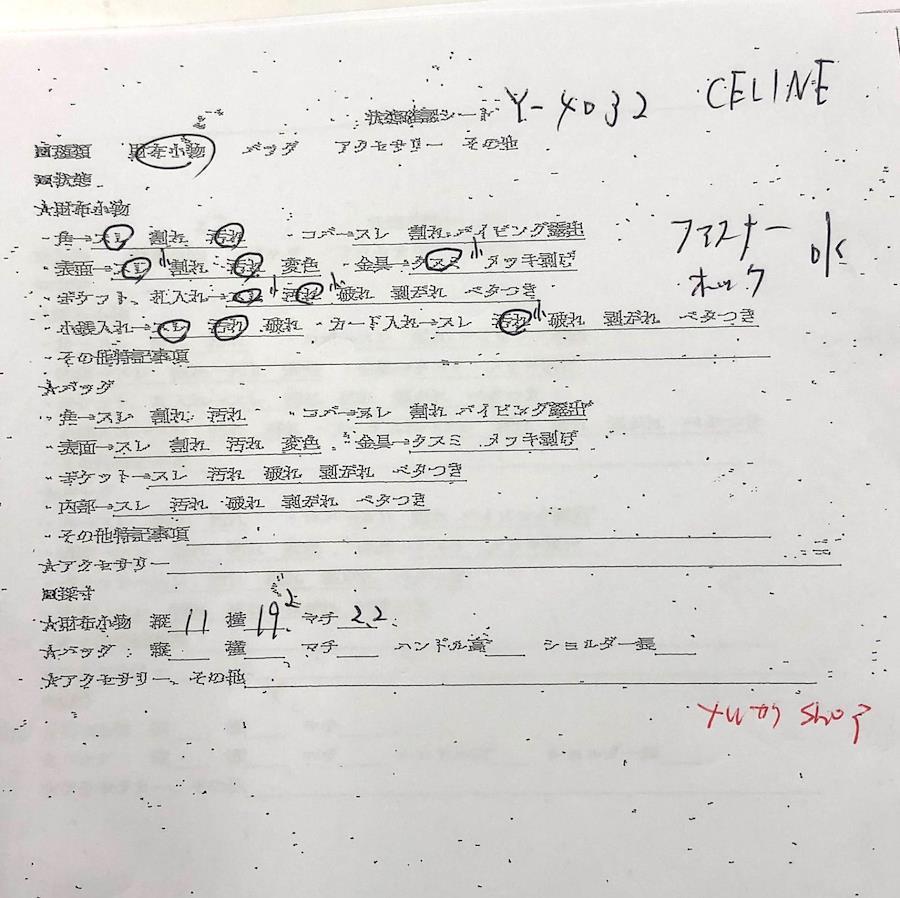 状態確認シート Y-4032 CELINE
■種類 財布小物 バッグ アクセサリー その他
■状態
★財布小物
・角→スレ 割れ 汚れ ・コバ→スレ 割れ パイピング露出
・表面→スレ小 割れ 汚れ 変色 ・金具→クスミ小 メッキ剥げ
ファスナー ホック ok
・ポケット、札入れ→スレ小 汚れ小 破れ 剥がれ ベタつき
・小銭入れ→スレ 汚れ 破れ ・カード入れ→スレ 汚れ小 破れ 剥がれ ベタつき
・その他特記事項
★バッグ
・角→スレ 割れ 汚れ ・コバ→スレ 割れ パイピング露出
・表面→スレ 割れ 汚れ 変色 ・金具→クスミ メッキ剥げ
・ポケット→スレ 汚れ 破れ 剥がれ ベタつき
・内部→スレ 汚れ 破れ 剥がれ ベタつき
・その他特記事項
★アクセサリー
■採寸
★財布小物 縦 11 横 19.2 マチ 2.2
★バッグ: 縦 横 マチ ハンドル高 ショルダー長
★アクセサリー、その他